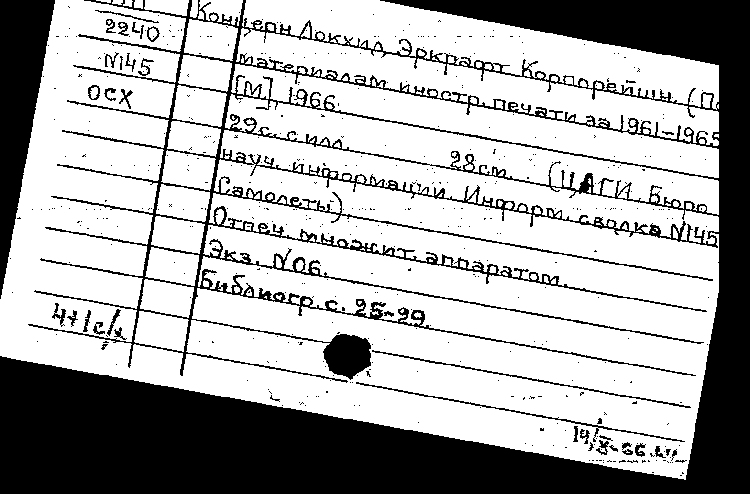 2240
N145
ОСХ
Концерн Локхид Эркрафт Корпорейшн. (По
материалам иностр. печати за 1961-1965
[М], 1966.
29с. с илл. 28см. (ЦАГИ. Бюро
науч. информации. Информ. сводка N145
Самолеты).
Отпеч. множит. аппаратом.
Экз. N06.
Библиогр. с. 25-29.